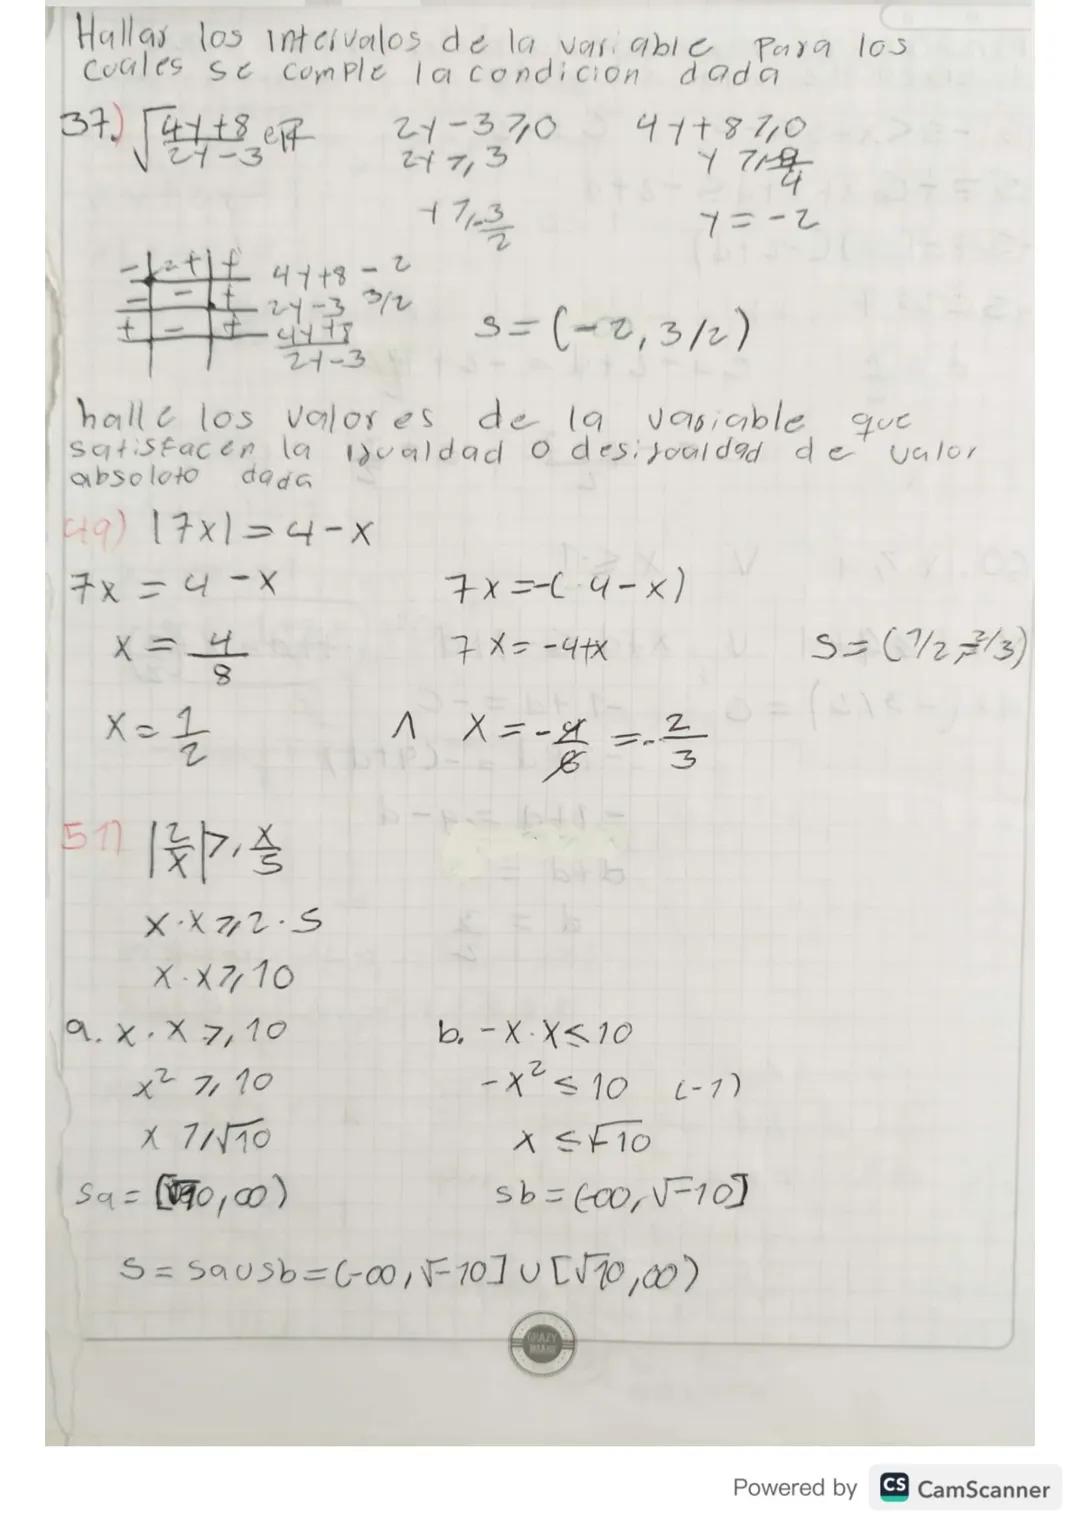 Hallar los intervalos de la variable para los
cuales se comple la condición dada
37.) √(4y+8 / 2y-3) ∈ R    2y-3 ≥ 0    4y+8 ≥ 0
2y ≥ 3    y ≥ -8/4
y ≥ 3/2    y = -2
- - + + 4y+8 - 2
- - + 2y-3 3/2
+ - + 4y+8 / 2y-3
S = (-2, 3/2)
halle los valores de la variable que
satisfacen la igualdad o desigualdad de valor
absoloto dada
49) |7x| = 4-x
7x = 4-x    7x = -(4-x)
x = 4/8    7x = -4+x    S = (1/2, -2/3)
x = 1/2    ∧    x = -4/6 = -2/3
51) |2/x| ≥ x/5
x·x ≥ 2·5
x·x ≥ 10
a. x·x ≥ 10    b. -x·x ≤ 10
x² ≥ 10    -x² ≤ 10 (-1)
x ≥ √10    x ≤ √-10
Sa = [√10, ∞)    Sb = (-∞, √-10]
S = Sa∪Sb = (-∞, √-10] ∪ [√10, ∞)
CRAZY
Powered by CS CamScanner